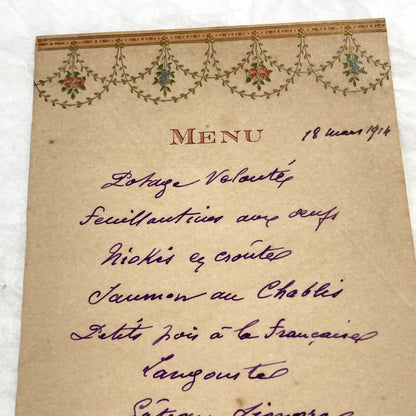 MENU
18 mars 1914
Potage Velouté
Feuillantines aux oeufs
Niokis en croûte
Saumon au Chablis
Petits pois à la Française
Langouste
Gâteau